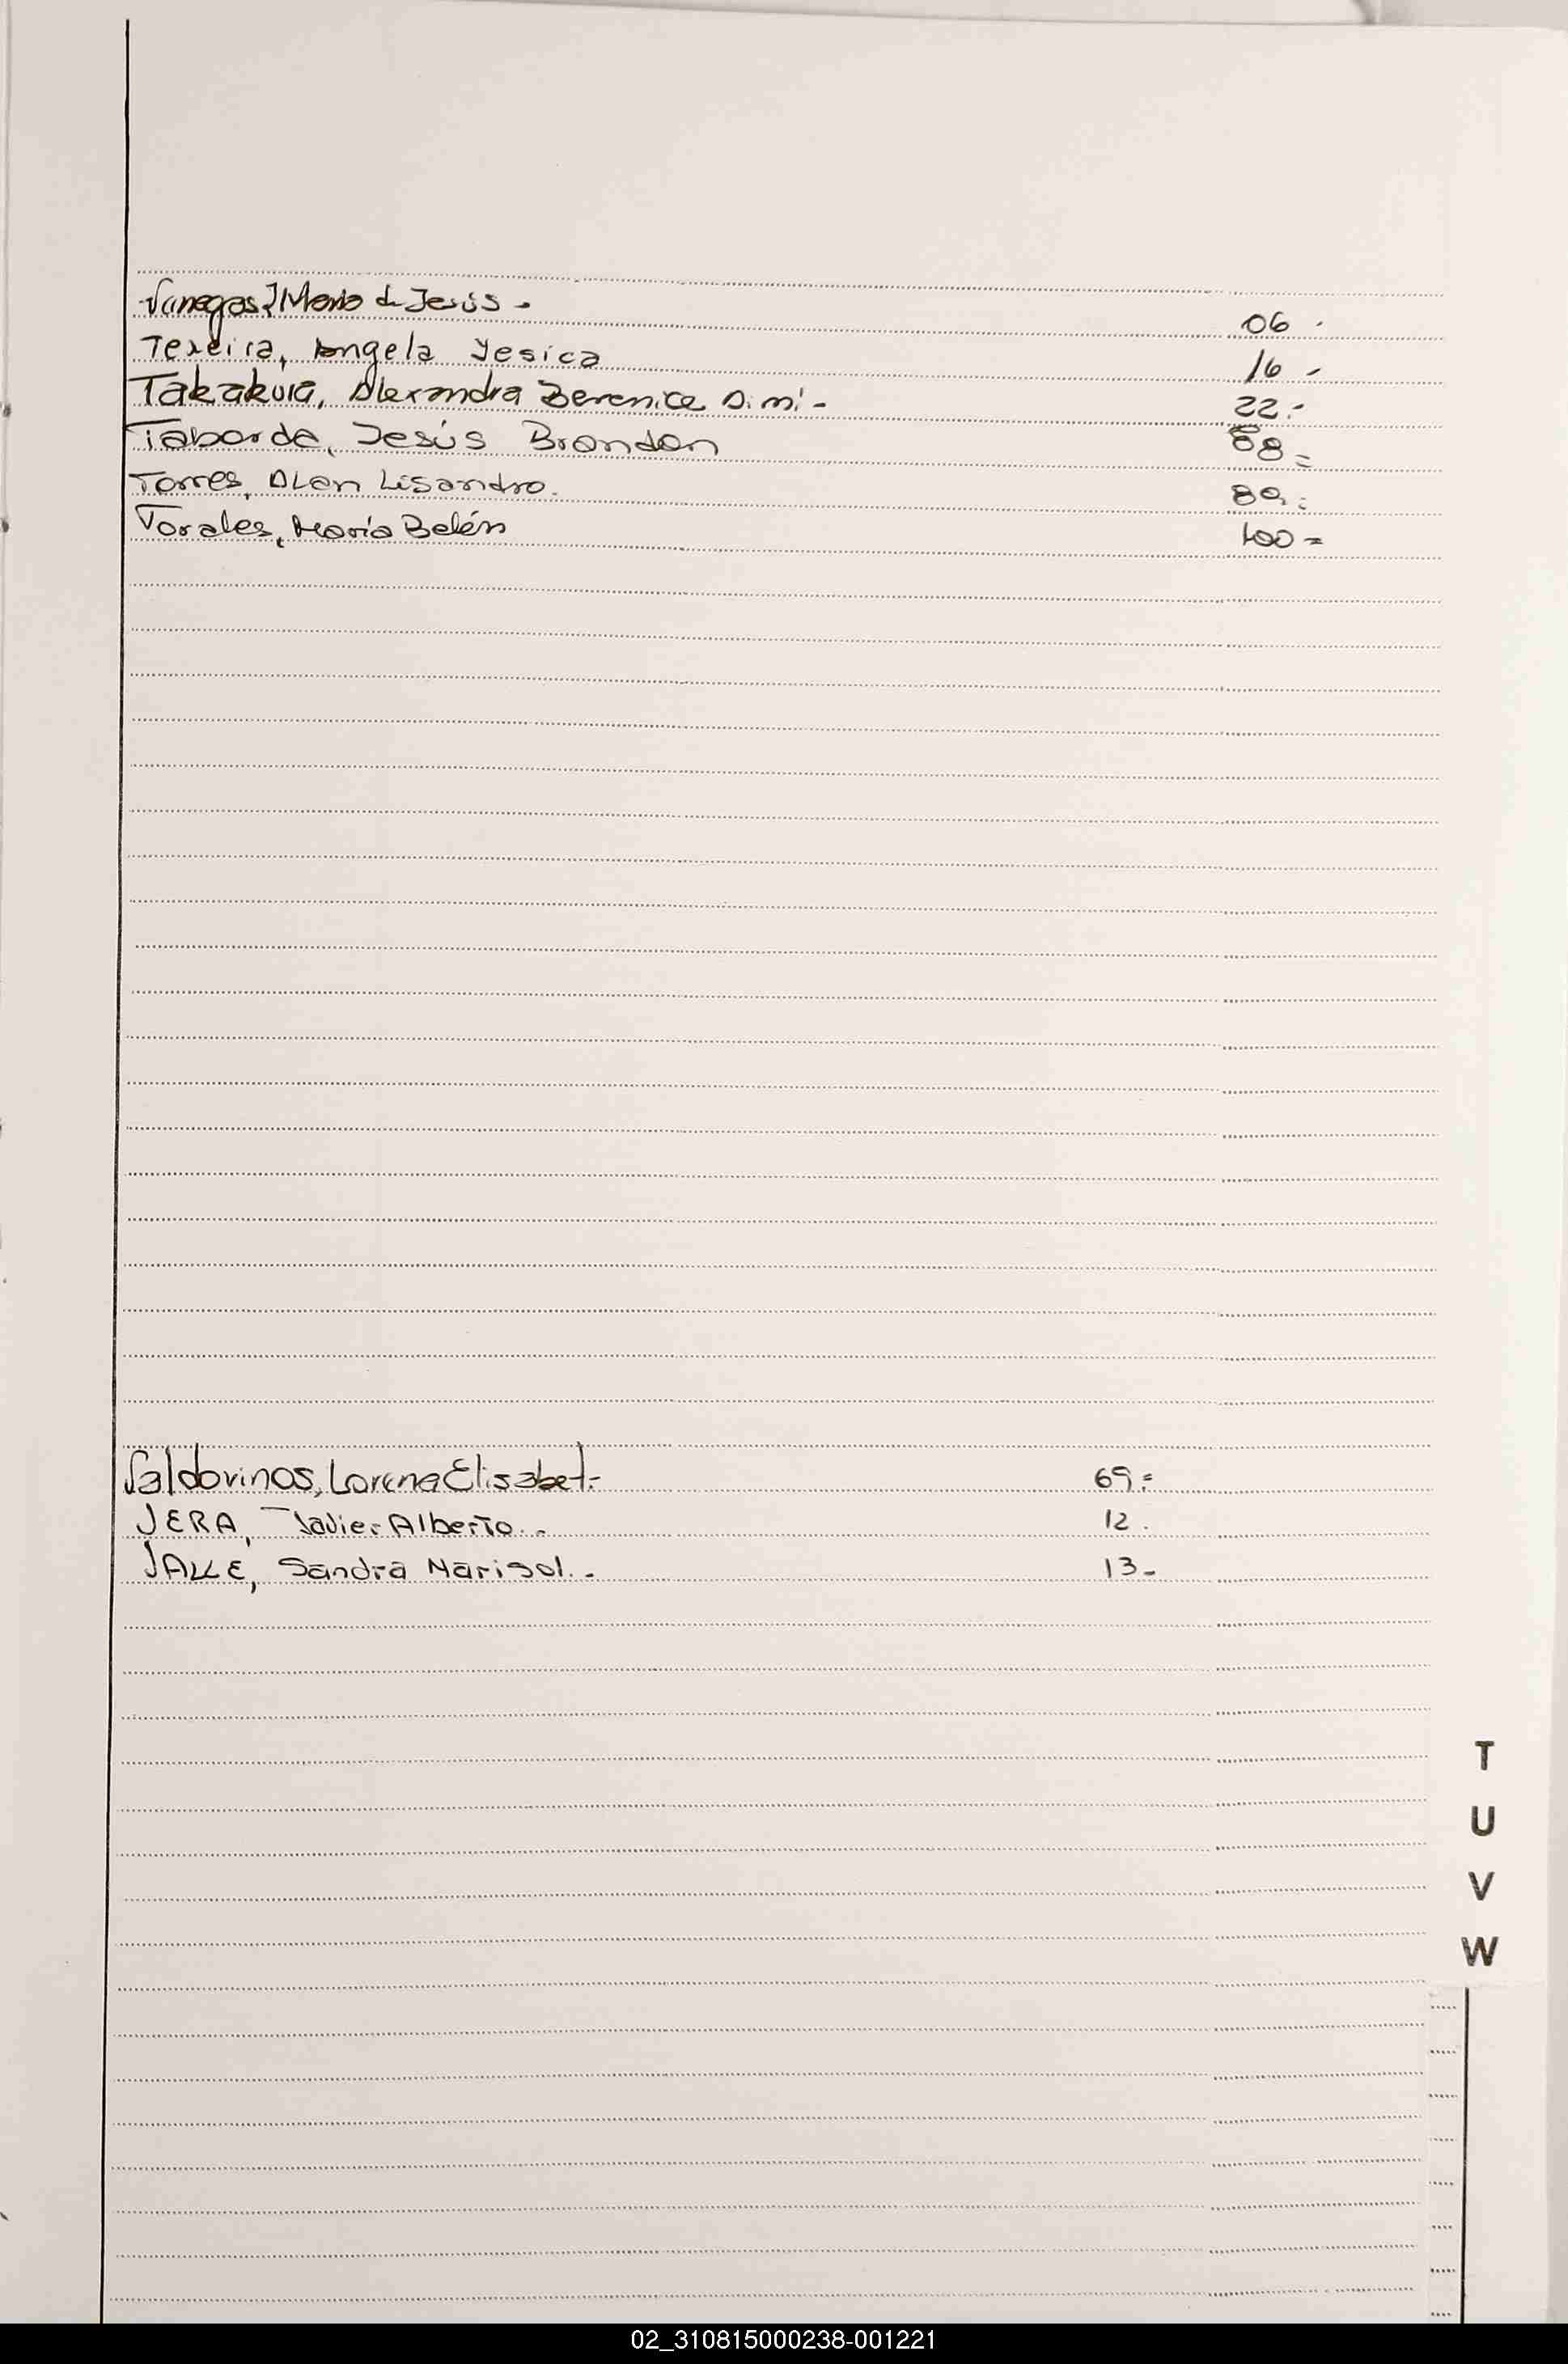 Vanegas, María de Jesús -
06 -
Texeira, Angela Yesica
16 -
Takakura, Alexandra Berenice Dimi -
22.-
Taborda, Jesús Brandon
88 =
Torres, Alan Lisandro.
89.=
Torales, María Belén
100 =
Valdovinos, Lorena Elisabet.-
69.=
VERA, Javier Alberto..-
12.
VALLE, Sandra Marisol..-
13-
T
U
V
W
02_310815000238-001221